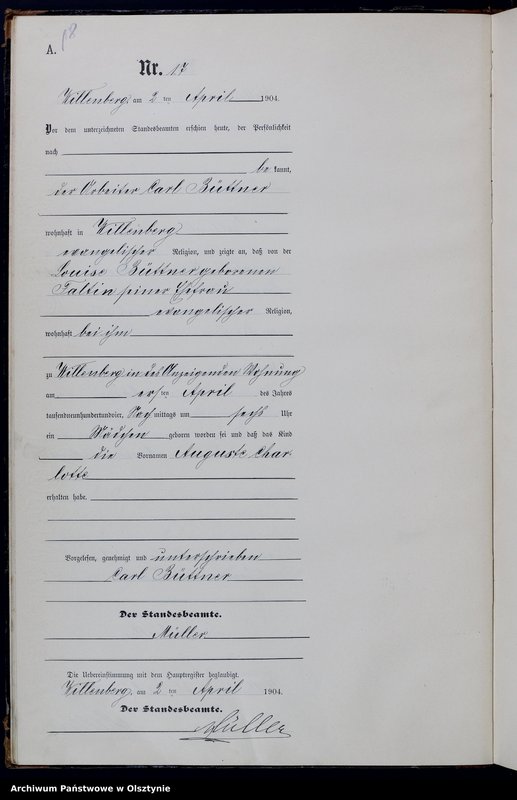 A.
18
Nr. 17
Willenberg am 2 ten April 1904.
Vor dem unterzeichneten Standesbeamten erschien heute, der Persönlichkeit
nach
be kannt,
der Arbeiter Carl Büttner
wohnhaft in Willenberg
evangelischer Religion, und zeigte an, daß von der
Louise Büttner geborenen
Faltin seiner Ehefrau
evangelischer Religion,
wohnhaft bei ihm
zu Willenberg in des Anzeigenden Wohnung
am ersten April des Jahres
tausendneunhundertundvier, Nachmittags um sechs Uhr
ein Mädchen geboren worden sei und daß das Kind
die Vornamen Auguste Char-
lotte
erhalten habe.
Vorgelesen, genehmigt und unterschrieben
Carl Büttner
Der Standesbeamte.
Müller
Die Uebereinstimmung mit dem Hauptregister beglaubigt.
Willenberg, am 2 ten April 1904.
Der Standesbeamte.
Müller
Archiwum Państwowe w Olsztynie